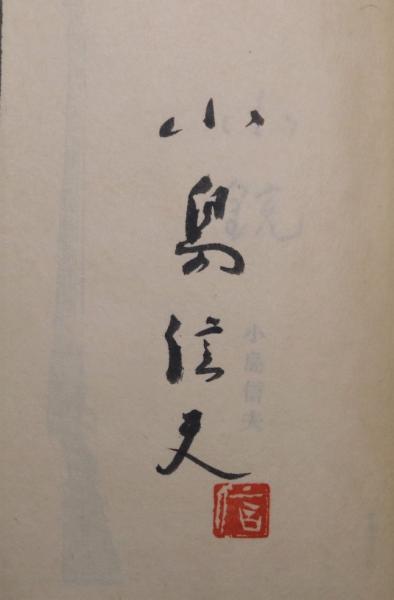 小島信夫
信
小島信夫